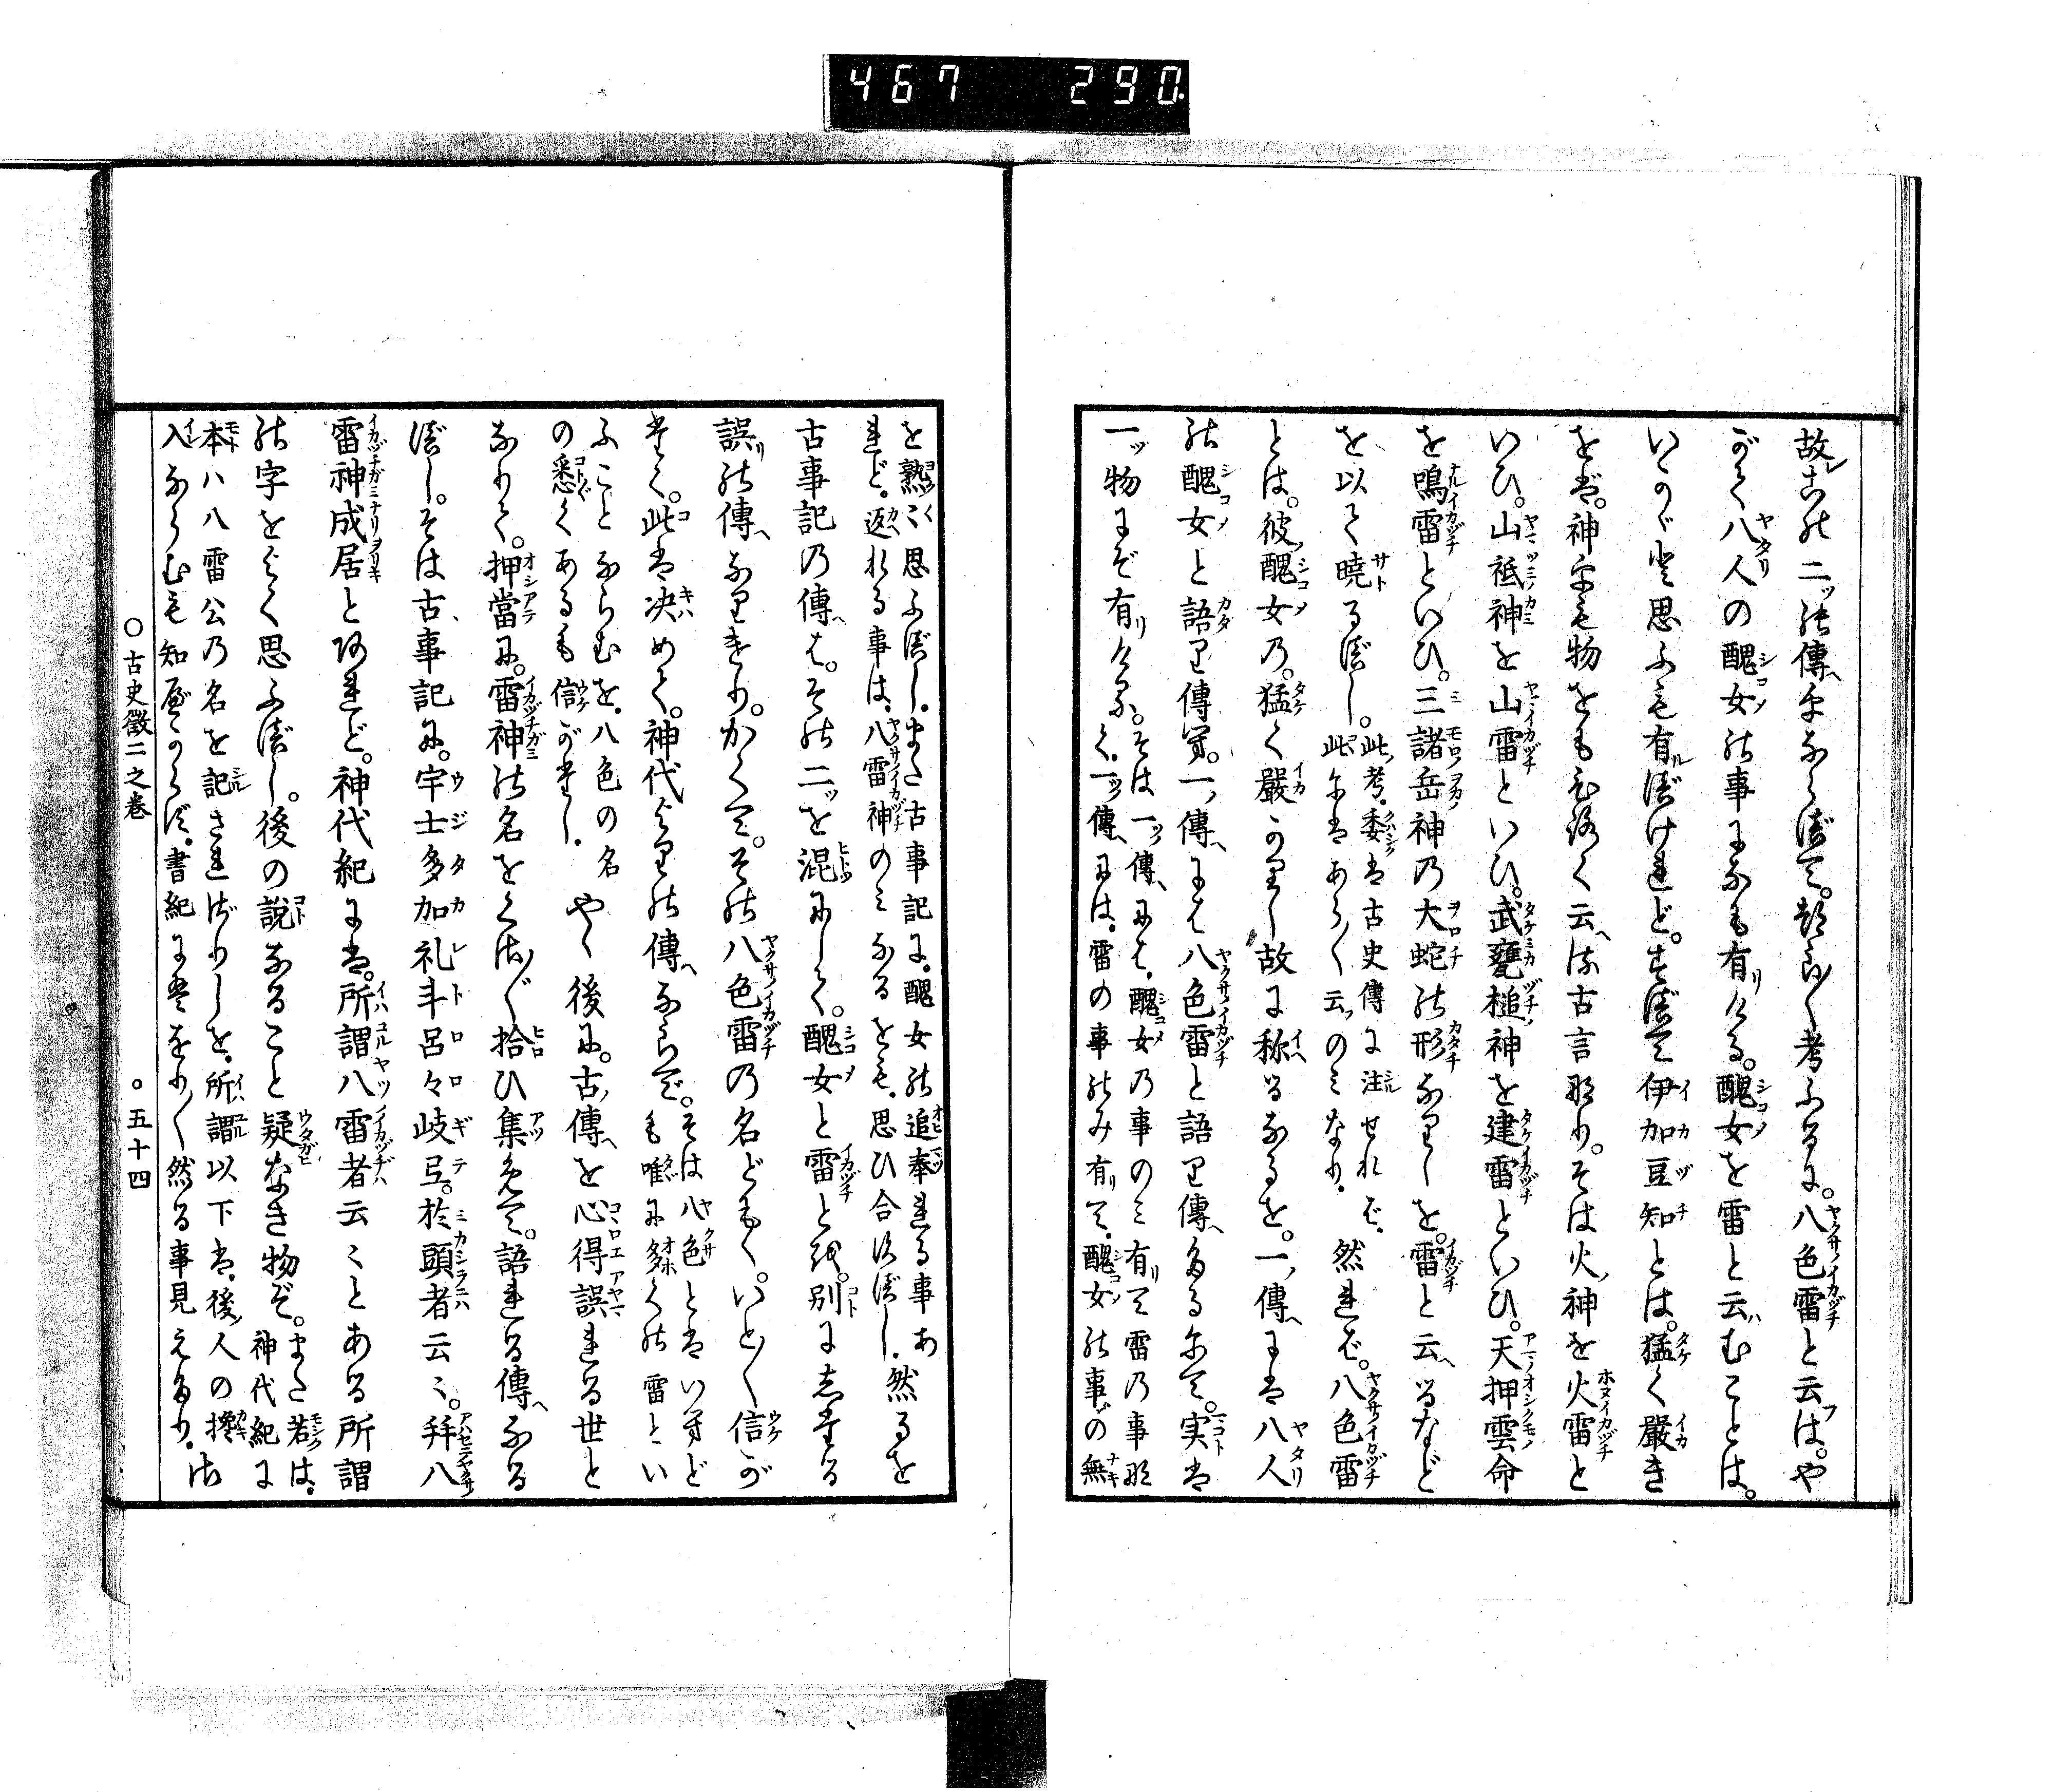 467 290.
故レ此の二ツの傳ヘにならべて。熟々考ふるに。八色雷と云フは。や
がて八人の醜女の事になも有リける。醜女を雷と云ハむことは。
いかゞと思ふも有ルべけれど。すべて伊加豆知とは。猛く嚴き
をば。神にも物にもひろく云ヘる古言なり。そは火ノ神を火雷と
いひ。山祇神を山雷といひ。武甕槌神を建雷といひ。天押雲命
を鳴雷といひ。三諸岳神の大蛇の形なりしを。雷と云ヘるなど
を以て曉るべし。此ノ考。委くは古史傳に注せれば
此にはあらく云フのみなり。然れば。八色雷
とは。彼ノ醜女の。猛く嚴かりし故に称ヘるなるを。一ノ傳ヘには八人
の醜女と語り傳ヘ。一ノ傳ヘには八色雷と語り傳ヘたるにて。実は
一ツ物にぞ有リける。そは一ツノ傳ヘには。醜女の事のみ有リて雷の事な
く。一ツノ傳ヘには。雷の事のみ有リて。醜女の事の無
を熟く思ふべし。また古事記に。醜女の追奉れる事あ
れど。返れる事は。八雷神のみなるをも。思ひ合すべし。然るを
古事記の傳ヘは。その二ツを混にして。醜女と雷とを。別にしたる
誤リの傳ヘなりけり。かくて。その八色雷の名ども。いと〳〵信が
たく。此は决めて。神代よりの傳ヘならで。そは八色とはいへど
も唯に多くの雷とい
ふことならむを。八色の名
の悉くあるも信がたし。やゝ後に。古ノ傳ヘを心得誤れる世と
なりて。押當に。雷神の名をくさ〴〵拾ひ集めて。語れる傳ヘなる
べし。そは古事記に。宇士多加礼斗呂々岐弖。於頭者云々。拜八
雷神成居とあれど。神代紀には。所謂八雷者云々とある所謂
の字をよく思ふべし。後の説なること疑なき物ぞ。また若は。
神代紀に
本ハ八雷公の名を記されざりしを。所謂以下は。後ノ人の攙
入ならむも知べからず。書紀には をり〳〵然る事見えたり。
○古史徴二之巻 ○五十四